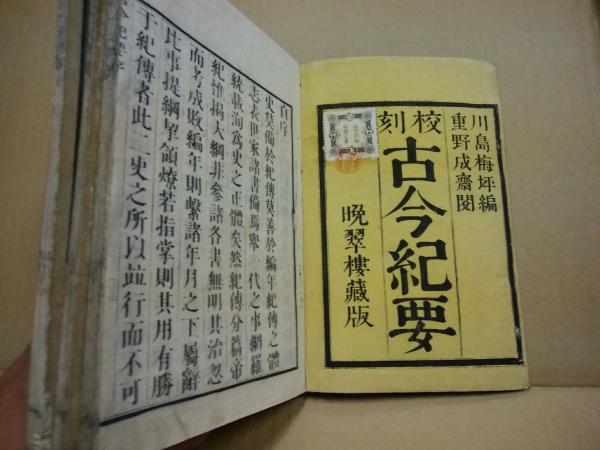 川島梅坪編
重野成齋閱
校刻
古今紀要
晚翠樓藏版
自序
史莫備於紀傳莫善於編年紀傳之體
志表世家諸書備焉舉一代之事網羅
統載洵為史之正體矣然紀傳分篇帝
紀惟揭大綱非參諸各書無明其治忽
而考成敗編年則繫諸年月之下屬辭
比事提綱挈領燎若指掌則其用有勝
于紀傳者此二史之所以並行而不可